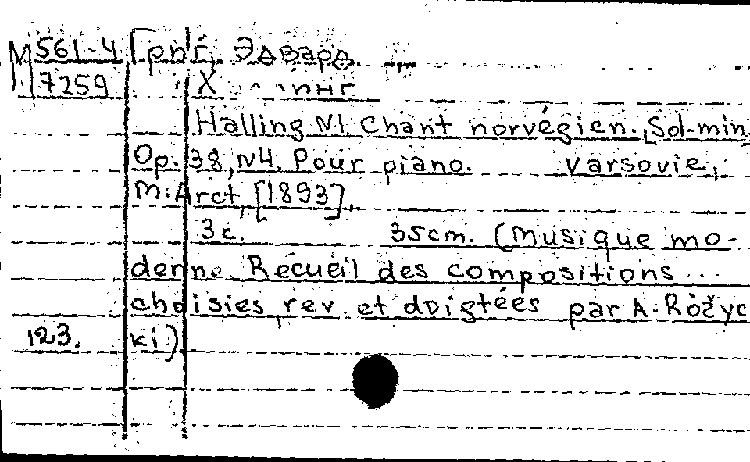 М 561-4 Гріг, Эдвард
7259 Х
Halling N1 Chant norvégien. Sol-min
Op. 38, N4. Pour piano. Varsovie,
M. Arct, [1893].
3 с. 35cm. (Musique mo-
derne. Recueil des compositions ...
choisies rev. et doigtées par A. Różyc
123. ki)